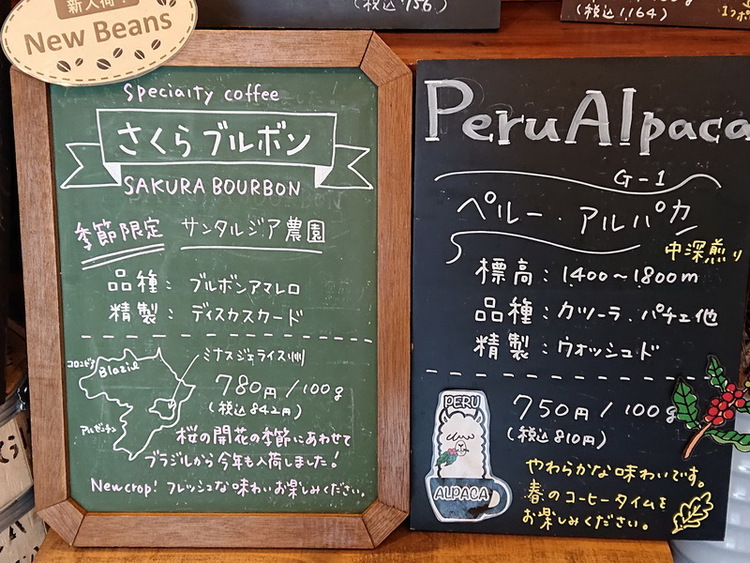 新入荷!
New Beans
(税込 756)
(税込 1,164)
Specialty coffee
さくらブルボン
SAKURA BOURBON
季節限定 サンタルジア農園
品種: ブルボンアマレロ
精製: ディスカスカード
コロンビア
Blazil
アルゼンチン
ミナスジェライス州
780円/100g
(税込842円)
桜の開花の季節にあわせて
ブラジルから今年も入荷しました!
New crop! フレッシュな味わいお楽しみください。
Peru Alpaca
G-1
ペルー・アルパカ
中深煎り
標高:1400~1800m
品種:カツーラ、パチェ他
精製:ウォッシュド
PERU
ALPACA
750円/100g
(税込810円)
やわらかな味わいです。
春のコーヒータイムを
お楽しみください。